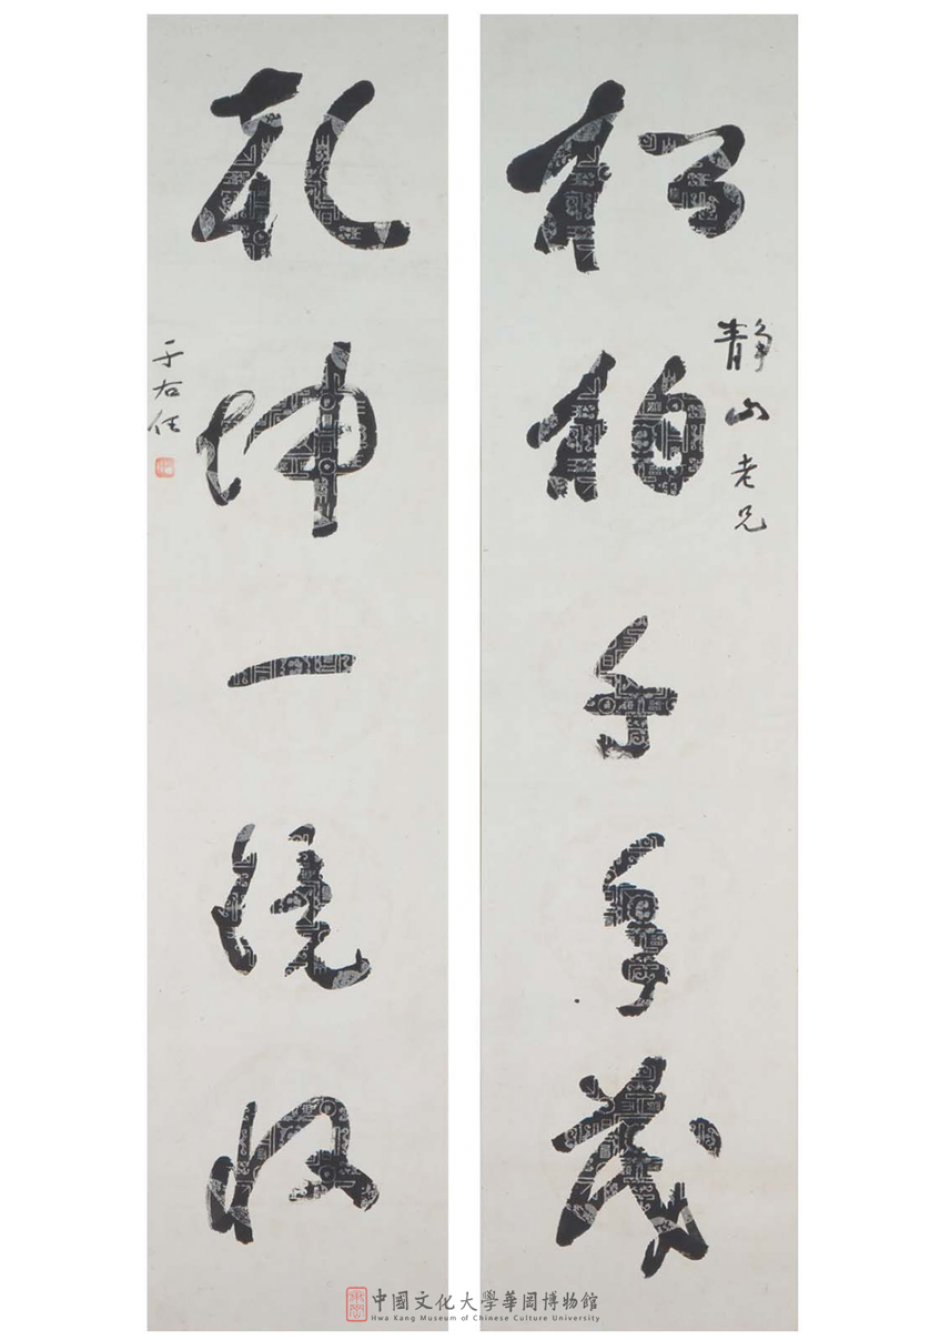 松柏千年茂
靜山老兄
乾坤一鏡收
于右任
中國文化大學華岡博物館
Hwa Kang Museum of Chinese Culture University